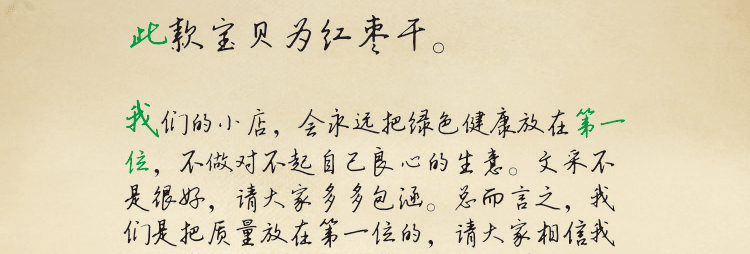 此款宝贝为红枣干。
我们的小店，会永远把绿色健康放在第一
位，不做对不起自己良心的生意。文采不
是很好，请大家多多包涵。总而言之，我
们是把质量放在第一位的，请大家相信我